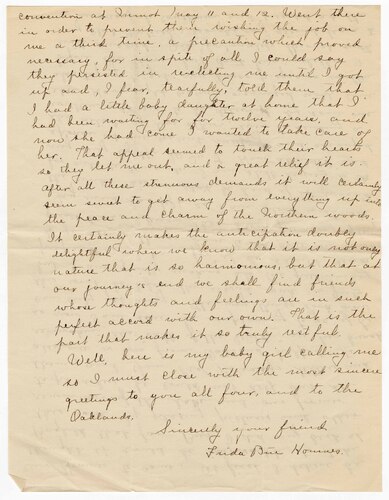 convention at Minot May 11 and 12. Went there
in order to prevent them wishing the job on
me a third time, a precaution which proved
necessary, for in spite of all I could say
they persisted in reelecting me until I got
up and, I fear, tearfully, told them that
I had a little baby daughter at home that I
had been waiting for for twelve years, and
now she had come I wanted to take care of
her. That appeal seemed to touch their hearts
so they let me out, and a great relief it is.
after all these strenuous demands it will certainly
seem sweet to get away from everything up into
the peace and charm of the Northern woods.
It certainly makes the anticipation doubly
delightful when we know that it is not only
nature that is so harmonious, but that at
our journey's end we shall find friends
whose thoughts and feelings are in such
perfect accord with our own. That is the
part that makes it so truly restful.
Well, here is my baby girl calling me
so I must close with the most sincere
greetings to you all four, and to the
Oaklands.
Sincerely your friend
Frida Bue